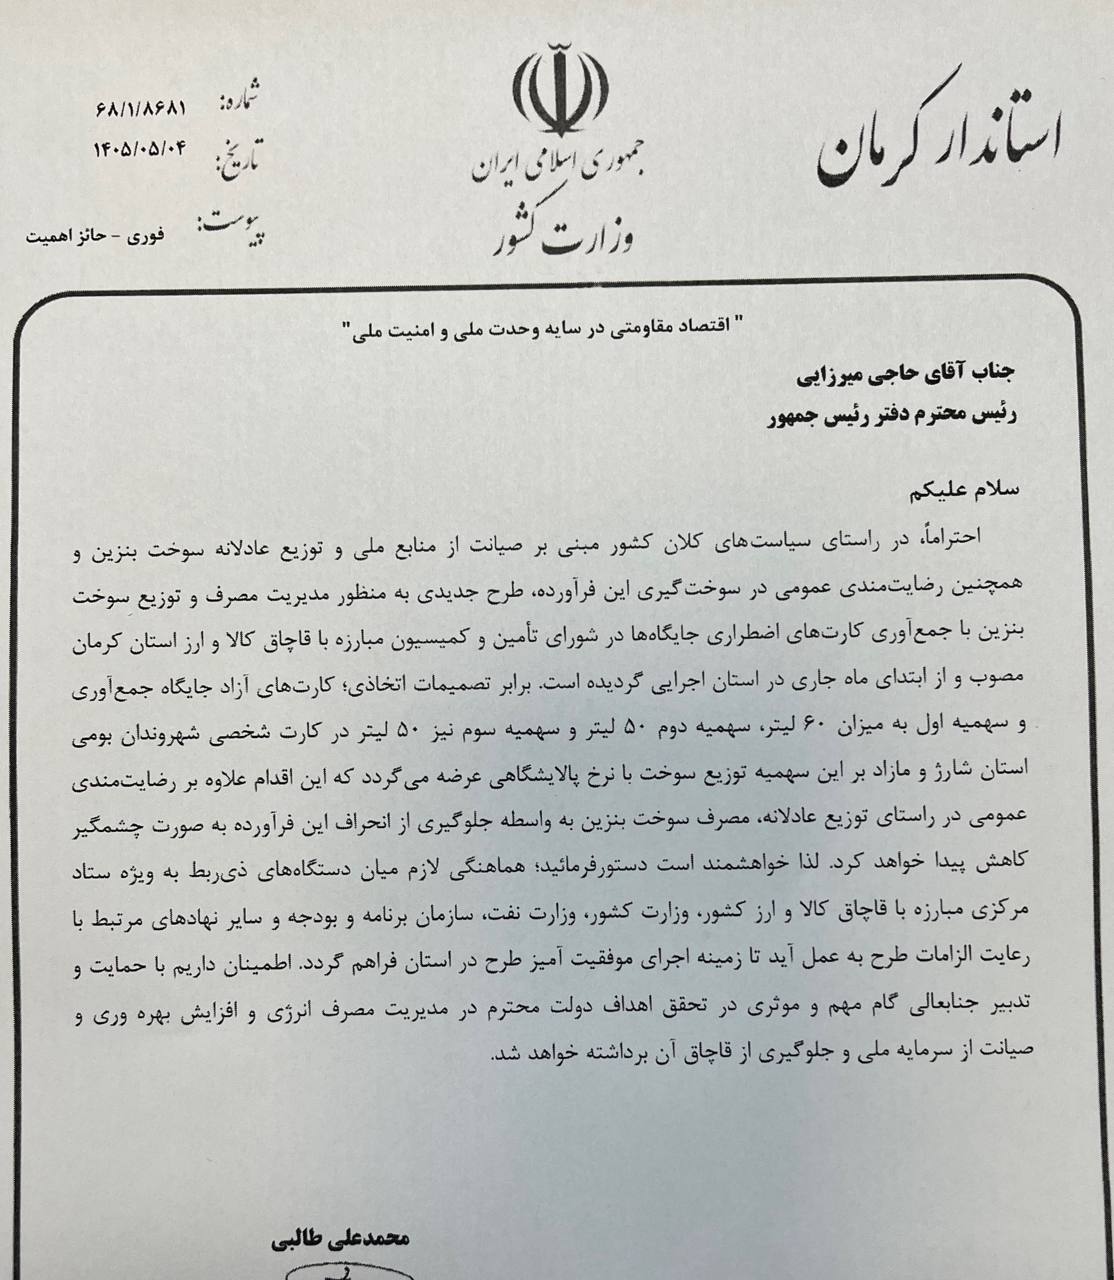 استاندار کرمان
جمهوری اسلامی ایران
وزارت کشور
شماره: ۶۸/۱/۸۶۸۱
تاریخ: ۱۴۰۵/۰۵/۰۴
پیوست: فوری - حائز اهمیت
" اقتصاد مقاومتی در سایه وحدت ملی و امنیت ملی"
جناب آقای حاجی میرزایی
رئیس محترم دفتر رئیس جمهور
سلام علیکم
احتراماً، در راستای سیاست‌های کلان کشور مبنی بر صیانت از منابع ملی و توزیع عادلانه سوخت بنزین و
همچنین رضایت‌مندی عمومی در سوخت‌گیری این فرآورده، طرح جدیدی به منظور مدیریت مصرف و توزیع سوخت
بنزین با جمع‌آوری کارت‌های اضطراری جایگاه‌ها در شورای تأمین و کمیسیون مبارزه با قاچاق کالا و ارز استان کرمان
مصوب و از ابتدای ماه جاری در استان اجرایی گردیده است. برابر تصمیمات اتخاذی؛ کارت‌های آزاد جایگاه جمع‌آوری
و سهمیه اول به میزان ۶۰ لیتر، سهمیه دوم ۵۰ لیتر و سهمیه سوم نیز ۵۰ لیتر در کارت شخصی شهروندان بومی
استان شارژ و مازاد بر این سهمیه توزیع سوخت با نرخ پالایشگاهی عرضه می‌گردد که این اقدام علاوه بر رضایت‌مندی
عمومی در راستای توزیع عادلانه، مصرف سوخت بنزین به واسطه جلوگیری از انحراف این فرآورده به صورت چشمگیر
کاهش پیدا خواهد کرد. لذا خواهشمند است دستورفرمائید؛ هماهنگی لازم میان دستگاه‌های ذی‌ربط به ویژه ستاد
مرکزی مبارزه با قاچاق کالا و ارز کشور، وزارت کشور، وزارت نفت، سازمان برنامه و بودجه و سایر نهادهای مرتبط با
رعایت الزامات طرح به عمل آید تا زمینه اجرای موفقیت آمیز طرح در استان فراهم گردد. اطمینان داریم با حمایت و
تدبیر جنابعالی گام مهم و موثری در تحقق اهداف دولت محترم در مدیریت مصرف انرژی و افزایش بهره وری و
صیانت از سرمایه ملی و جلوگیری از قاچاق آن برداشته خواهد شد.
محمدعلی طالبی